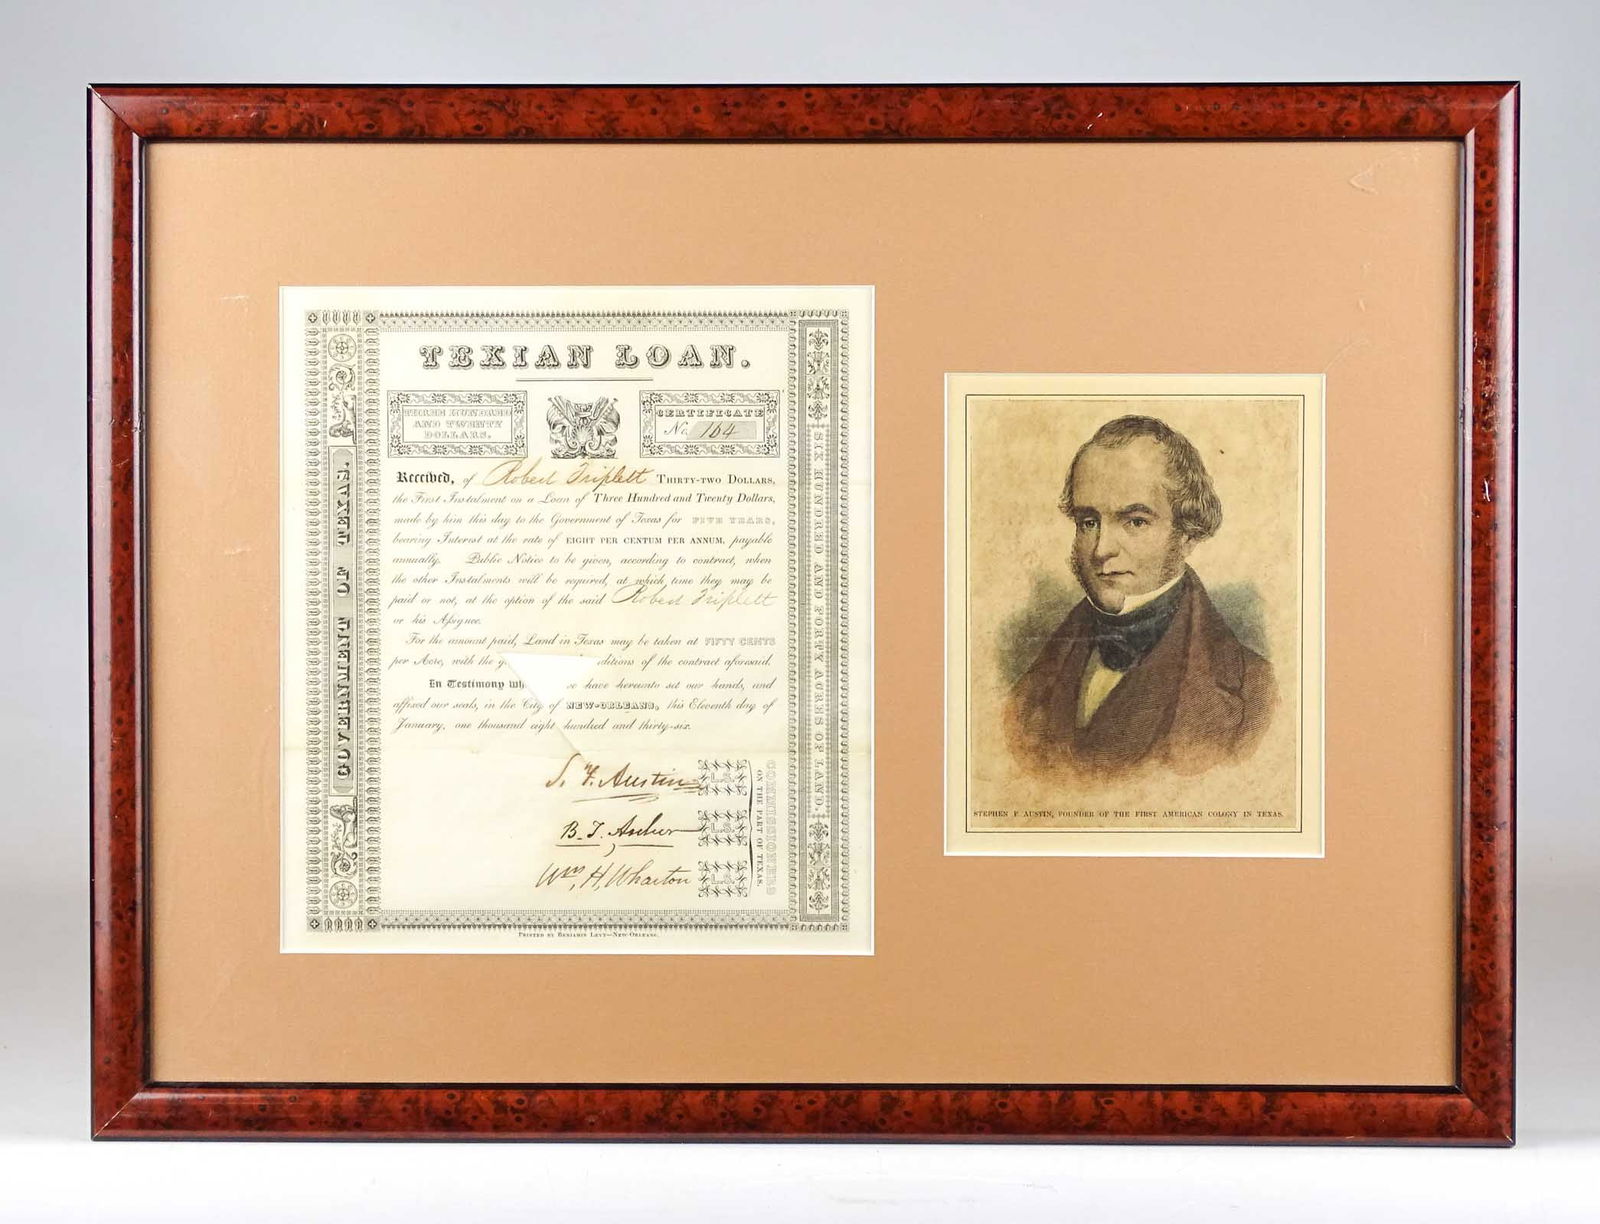 TEXIAN LOAN.
THREE HUNDRED
AND TWENTY
DOLLARS.
CERTIFICATE
No. 164
Received, of Robert Triplett THIRTY-TWO DOLLARS,
the First Instalment on a Loan of Three Hundred and Twenty Dollars,
made by him this day to the Government of Texas for FIVE YEARS,
bearing Interest at the rate of EIGHT PER CENTUM PER ANNUM, payable
annually. Public Notice to be given, according to contract, when
the other Instalments will be required, at which time they may be
paid or not, at the option of the said Robert Triplett
or his Assignee.
For the amount paid, Land in Texas may be taken at FIFTY CENTS
per Acre, with the ditions of the contract aforesaid.
In Testimony wh have hereunto set our hands, and
affixed our seals, in the City of NEW-ORLEANS, this Eleventh day of
January, one thousand eight hundred and thirty-six.
S. F. Austin L.S.
B. T. Archer L.S.
Wm. H. Wharton L.S.
COMMISSIONERS
ON THE PART OF TEXAS.
GOVERNMENT OF TEXAS.
SIX HUNDRED AND FORTY ACRES OF LAND.
PRINTED BY BENJAMIN LEVY—NEW-ORLEANS.
STEPHEN F. AUSTIN, FOUNDER OF THE FIRST AMERICAN COLONY IN TEXAS.